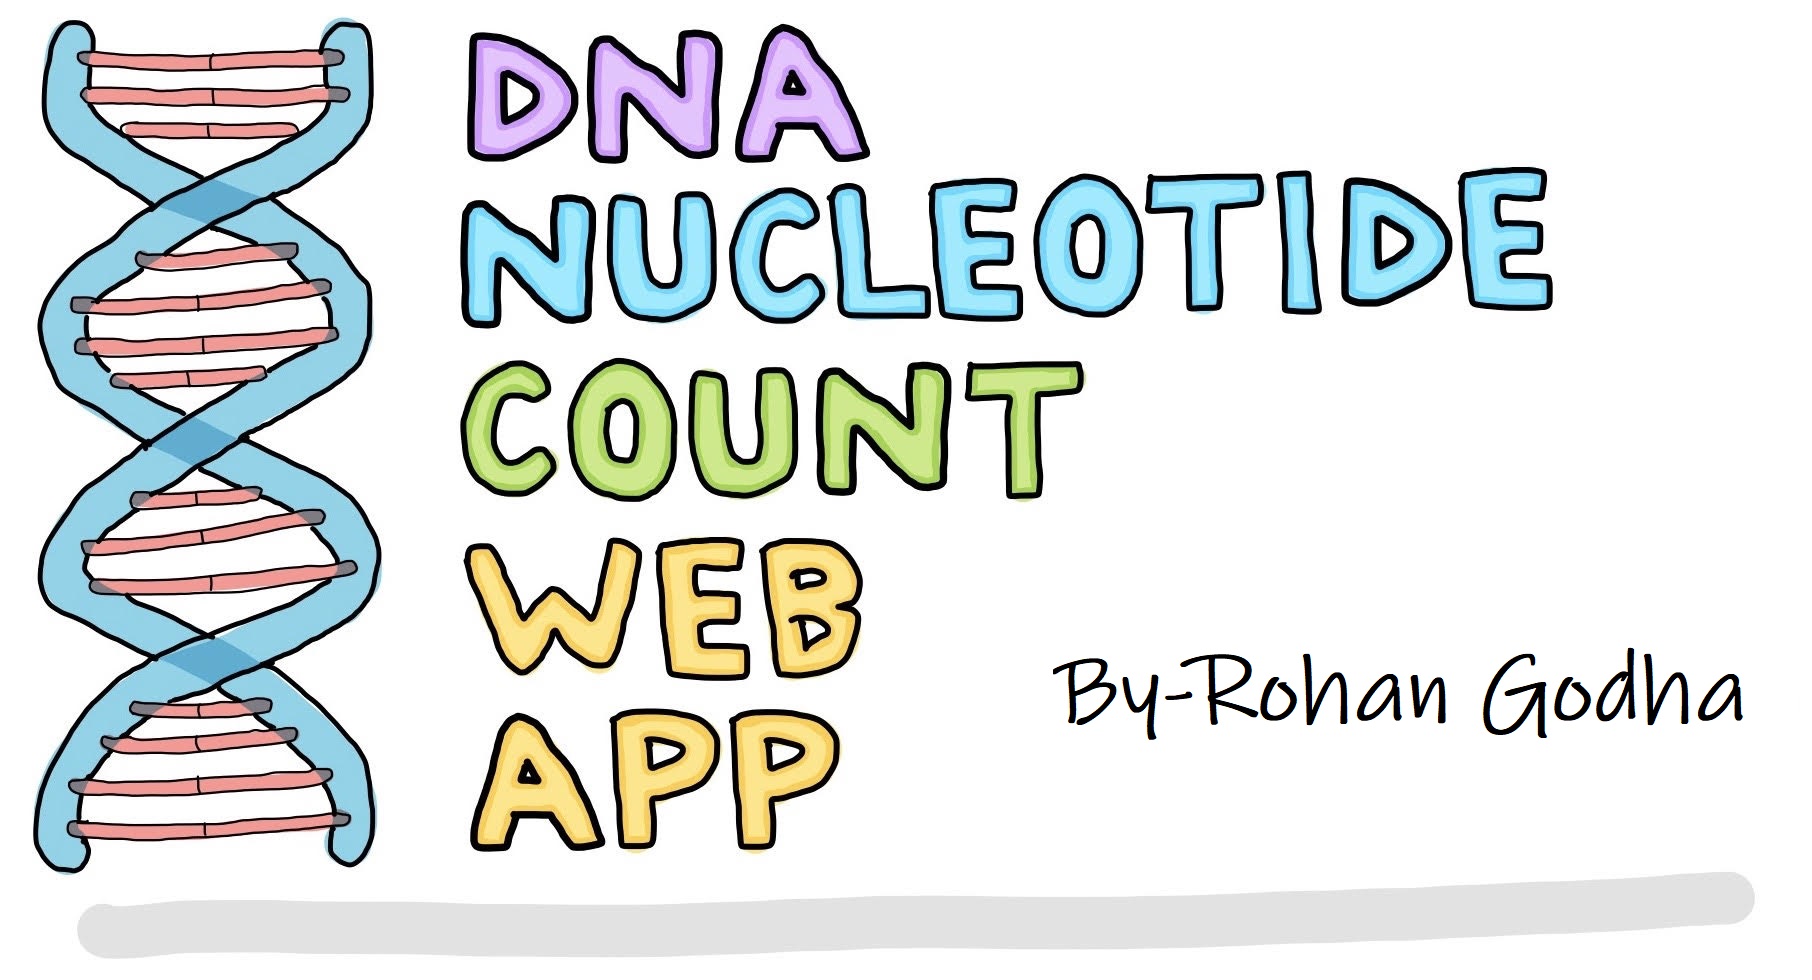 DNA
NUCLEOTIDE
COUNT
WEB
APP
By-Rohan Godha